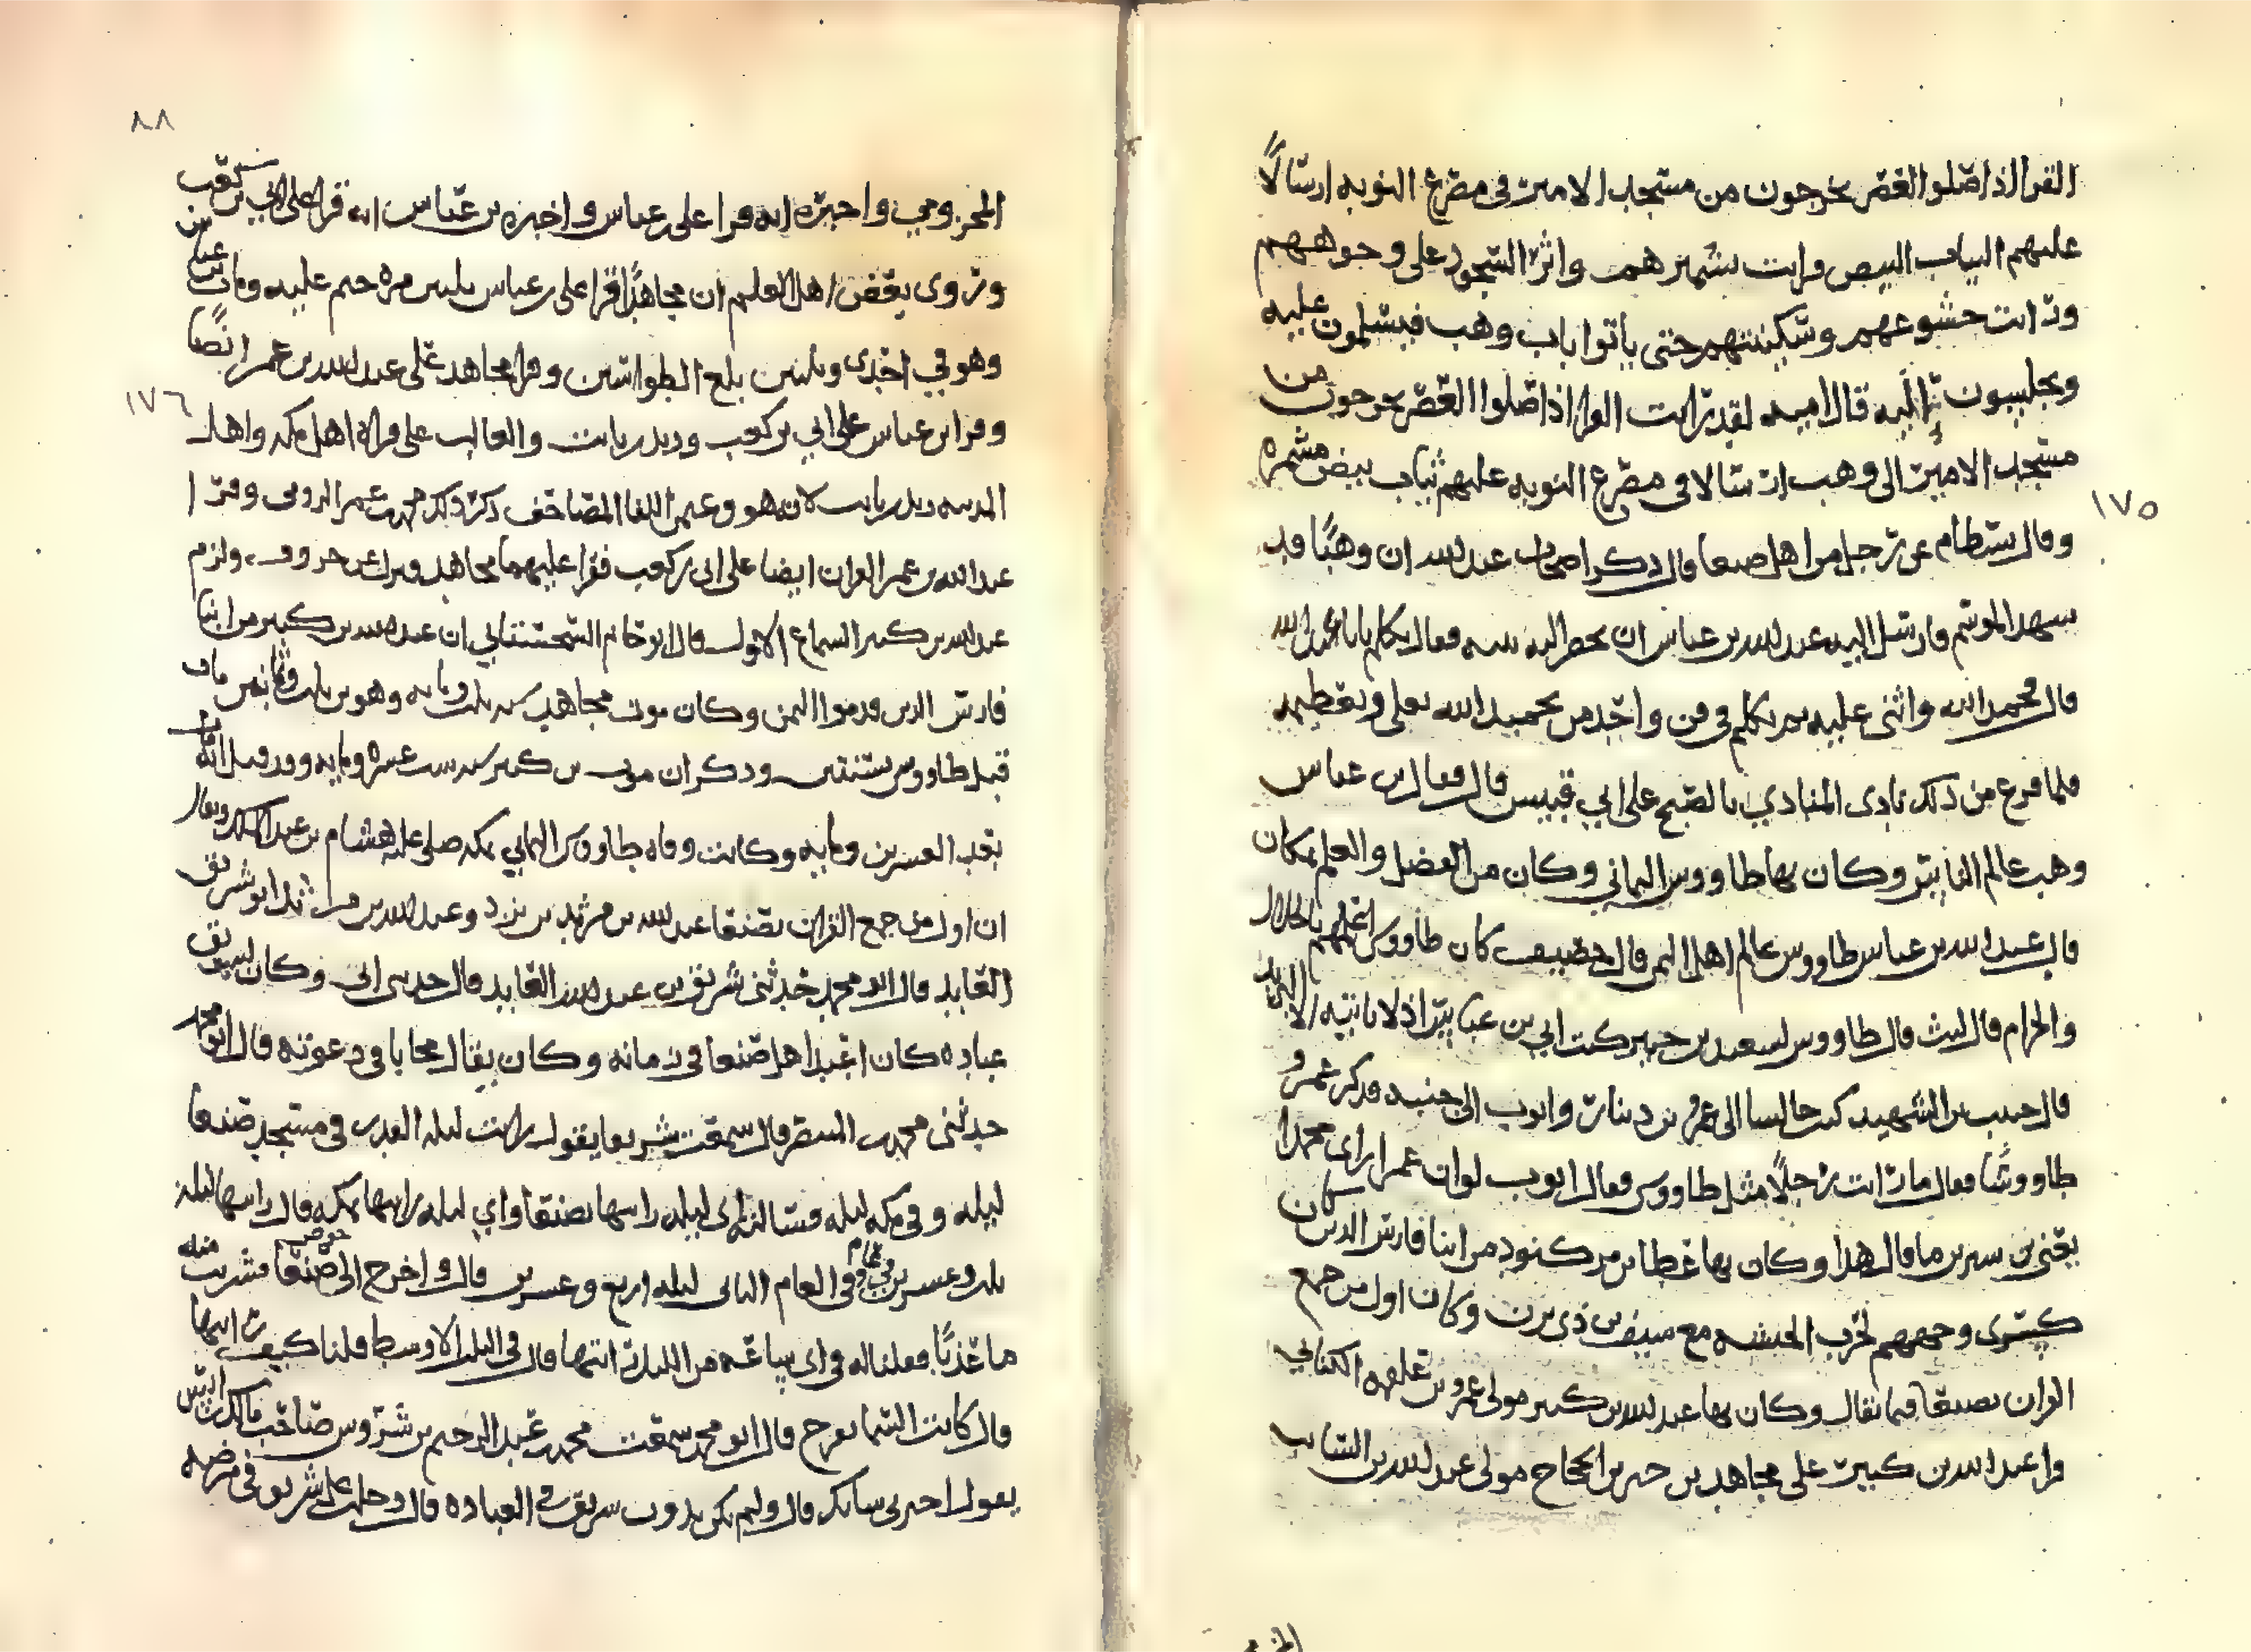 القرا اذا صلوا العصر يخرجون من مسجد الامير في مصرع النوبه ارسالًا
عليهم الثياب البيض رايت تشميرهم واثر السجود على وجوههم
ورايت خشوعهم وسكينتهم حتى ياتوا باب وهب فيسلمون عليه
ويجلسون اليه قال اميه لقد رايت القرا اذا صلوا العصر يخرجون من
مسجد الامير الى وهب ارسالا في مصرع النوبه عليهم ثياب بيض مشمره
١٧٥
وقال بسطام عن رجل من اهل صنعا قال ذكر اصحاب عبد الله ان وهبًا قد
شهد الموسم فارسل اليه عبد الله بن عباس ان يحضر اليه فقال تكلم يابا عبد الله
قال فحمد الله واثنى عليه ثم تكلم في فن واحد من تحميد الله تعلى وتعظيمه
فلما فرغ من ذلك نادى المنادي بالصبح على ابي قبيس قال فقال بن عباس
وهب عالم الناس وكان بها طاووس اليماني وكان من الفضل والعلم بمكان
قال عبد الله بن عباس طاووس عالم اهل اليمن قال خصيف كان طاووس اعلمهم بالحلال
والحرام قال ليث قال طاووس لسعيد بن جبير كنت ابي بن عباس اذ لا ياتيه الا البريد
قال حبيب بن الشهيد كنت جالسا الى عمرو بن دينار وايوب الى جنبه فذكر عمرو
طاووسًا فقال ما رايت رجلًا مثل طاووس فقال ايوب لو ان عمرا راى محمدا
يعني بن سيرين ما قال هذا وكان بها عطا بن مركنود من ابنا فارس الذين كان
كسرى وجههم لحرب الحبشه مع سيف بن ذي يزن وكان اول من جمع
القران بصنعا فيما يقال وكان بها عبد الله بن كثير مولى عمرو بن علقمه الكناني
قرا عبد الله بن كثير على مجاهد بن جبر بن الحجاج مولى عبد الله بن السايب
٨٨
المخزومي واخبره انه قرا على بن عباس واخبره بن عباس انه قرا على ابي بن كعب
وروى بعض اهل العلم ان مجاهدًا قرا على بن عباس ثلثين مره ختم عليه ومات بن عباس
وهو في احدى وثلثين بلغ الطواسين وقرا مجاهد على عبد الله بن عمر ايضًا
١٧٦
وقرا بن عباس على ابي بن كعب وزيد بن ثابت والغالب على قراه اهل مكه واهل
المدينه زيد بن ثابت لانه هو وعثمن الفا المصاحف ذكر ذلك محمد بن عمر الرومي وقرا
عبد الله بن عمر القران ايضا على ابي بن كعب فقرا عليهما مجاهد وترك عن حروف ولزم
عبد الله بن كثير السماع الاول قال ابو حاتم السجستاني ان عبد الله بن كثير من ابنا
فارس الذين قدموا اليمن وكان موت مجاهد سنه ثلث ومايه وهو بن ثلث وثمانين مات
قبل طاووس بسنتين وذكر ان موت بن كثير سنه ست عشره ومايه وقد قيل انه مات
بعد العشرين ومايه وكانت وفاه طاووس اليماني بمكه صلى عليه هشام بن عبد الملك ويقال
ان اول من جمع القران بصنعا عبد الله بن مرثد بن يزد وعبد الله بن مرثد ابو شريف
العابد قال ابو محمد حدثني شريف بن عبد الله العابد قال حدثني ابي وكان لشريف
عباده كان اعبد اهل صنعا في زمانه وكان يقال مجابا في دعوته قال ابو محمد
حدثني محمد بن السطر قال سمعت شريفا يقول رايت ليله القدر في مسجد صنعا
ليله وفي مكه ليله فسالته اي ليله راسها بصنعا واي ليله راسها بمكه قال راسها ليله
ثلث وعشرين في عام وفي العام الثاني ليله اربع وعشرين قال واخرج الى حوض صنعا فشربت منه
ما عذبًا فقلنا له في اي ساعه من الليل رايتها قال في الليل الاوسط قلنا كيف رايتها
قال كانت السما تعرج قال ابو محمد سمعت محمد بن عبد الرحيم بن شروس صاحب مالك بن انس
يقول اخبرني سابكر قال ولم يكن بدون شريف في العباده قال دخلت على شريف في مرضه